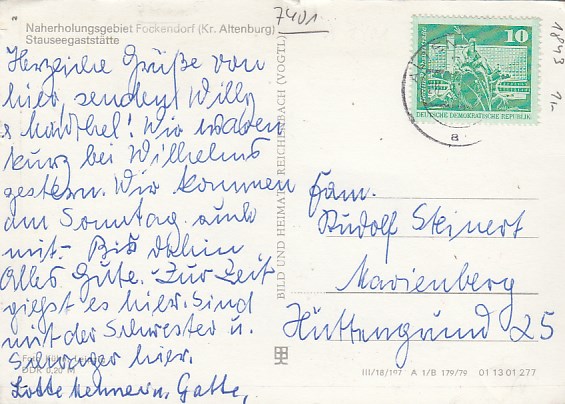 7401
Naherholungsgebiet Fockendorf (Kr. Altenburg)
Stauseegaststätte
Herzliche Grüße von
hier, senden Willy
Wir waren
kurz bei Wilhelms
gestern. Wir kommen
am Sonntag auch
mit.- Bis dahin
Alles Gute.- Zur Zeit
gießt es hier. Sind
mit der Schwester u.
Schwager hier.
DDR 0,20 M
Lotte u. Gatte,
BILD UND HEIMAT REICHENBACH (VOGTL)
10
DEUTSCHE DEMOKRATISCHE REPUBLIK
a
1843
1,-
Fam.
Rudolf Steinert
Marienberg
Hüttengrund 25
III/18/197 A 1/B 179/79 01 13 01 277